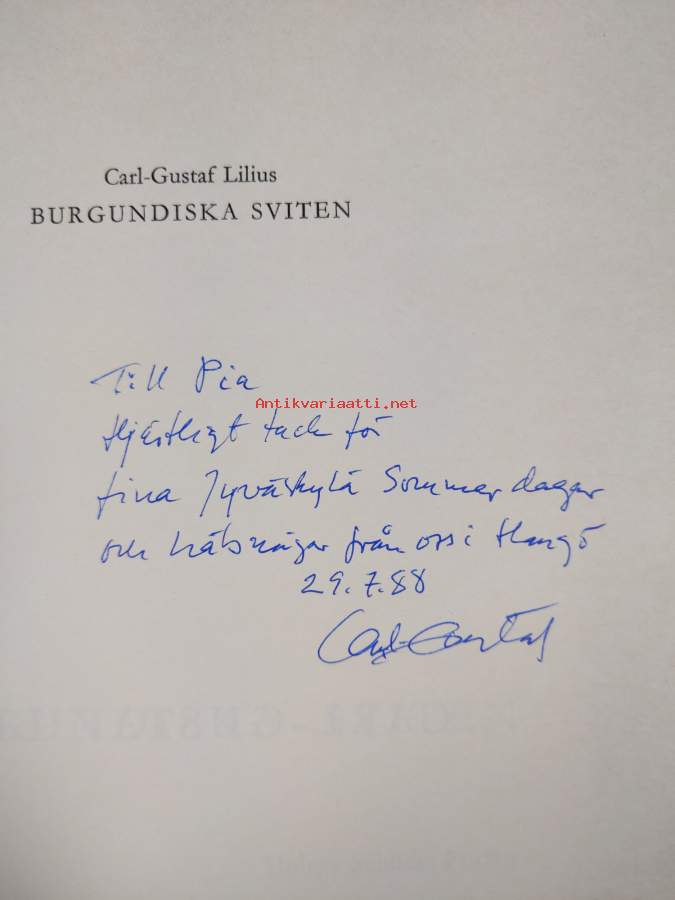 Carl-Gustaf Lilius
BURGUNDISKA SVITEN
Till Pia
Antikvariaatti.net
Hjärtligt tack för
fina Jyväskylä Sommar dagar
och hälsningar från oss i Hangö
29.7.88
Carl-Gustaf